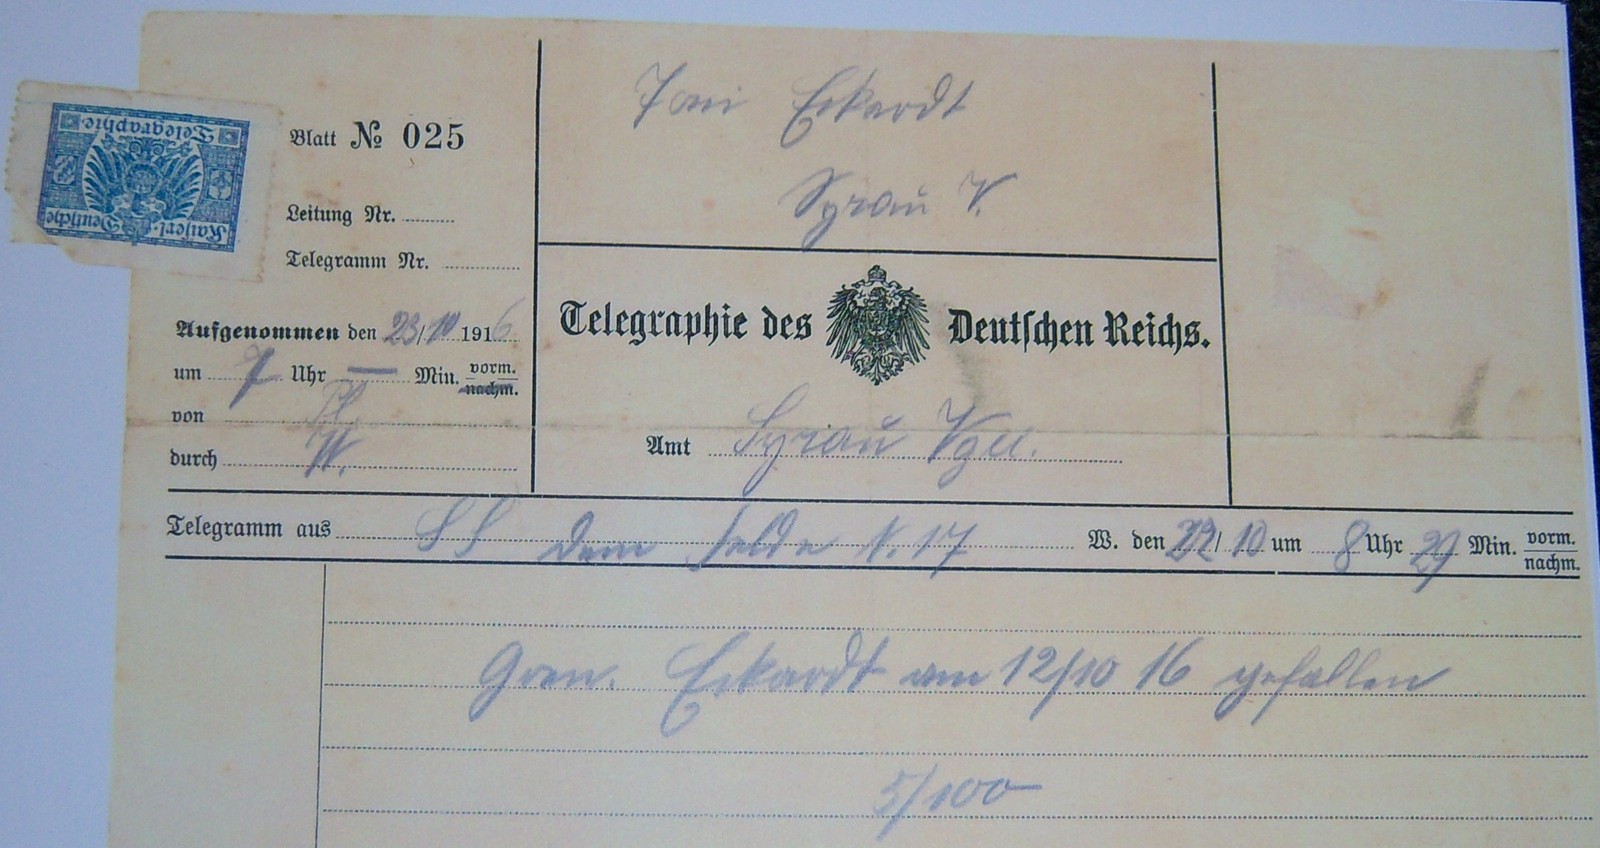 Kaiserl. Deutsche
Telegraphie.
Blatt № 025
Leitung Nr.
Telegramm Nr.
Aufgenommen den 23/10 1916
um 7 Uhr — Min. vorm.
nachm.
von Pl.
durch W.
Toni Eckardt
Syrau V.
Telegraphie des Deutschen Reichs.
Amt Syrau Vgtl.
Telegramm aus SS dem Felde N. 17 W. den 22/10 um 8 Uhr 29 Min. vorm.
nachm.
Gren. Eckardt am 12/10 16 gefallen
5/100